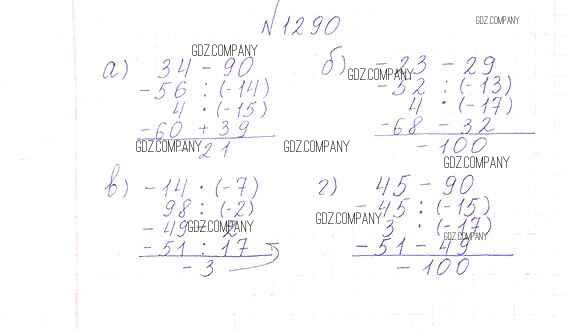 N 1290
GDZ.COMPANY
GDZ.COMPANY
а) 34 - 90
- 56 : (-14)
4 · (-15)
- 60 + 39
- 21
GDZ.COMPANY
б) - 23 - 29
GDZ.COMPANY
- 52 : (-13)
4 · (-17)
- 68 - 32
- 100
GDZ.COMPANY
GDZ.COMPANY
в) - 14 · (-7)
98 : (-2)
- 49 - 2
GDZ.COMPANY
- 51 : 17
- 3
г) 45 - 90
- 45 : (-15)
GDZ.COMPANY
3 · (-17)
GDZ.COMPANY
- 51 - 49
- 100